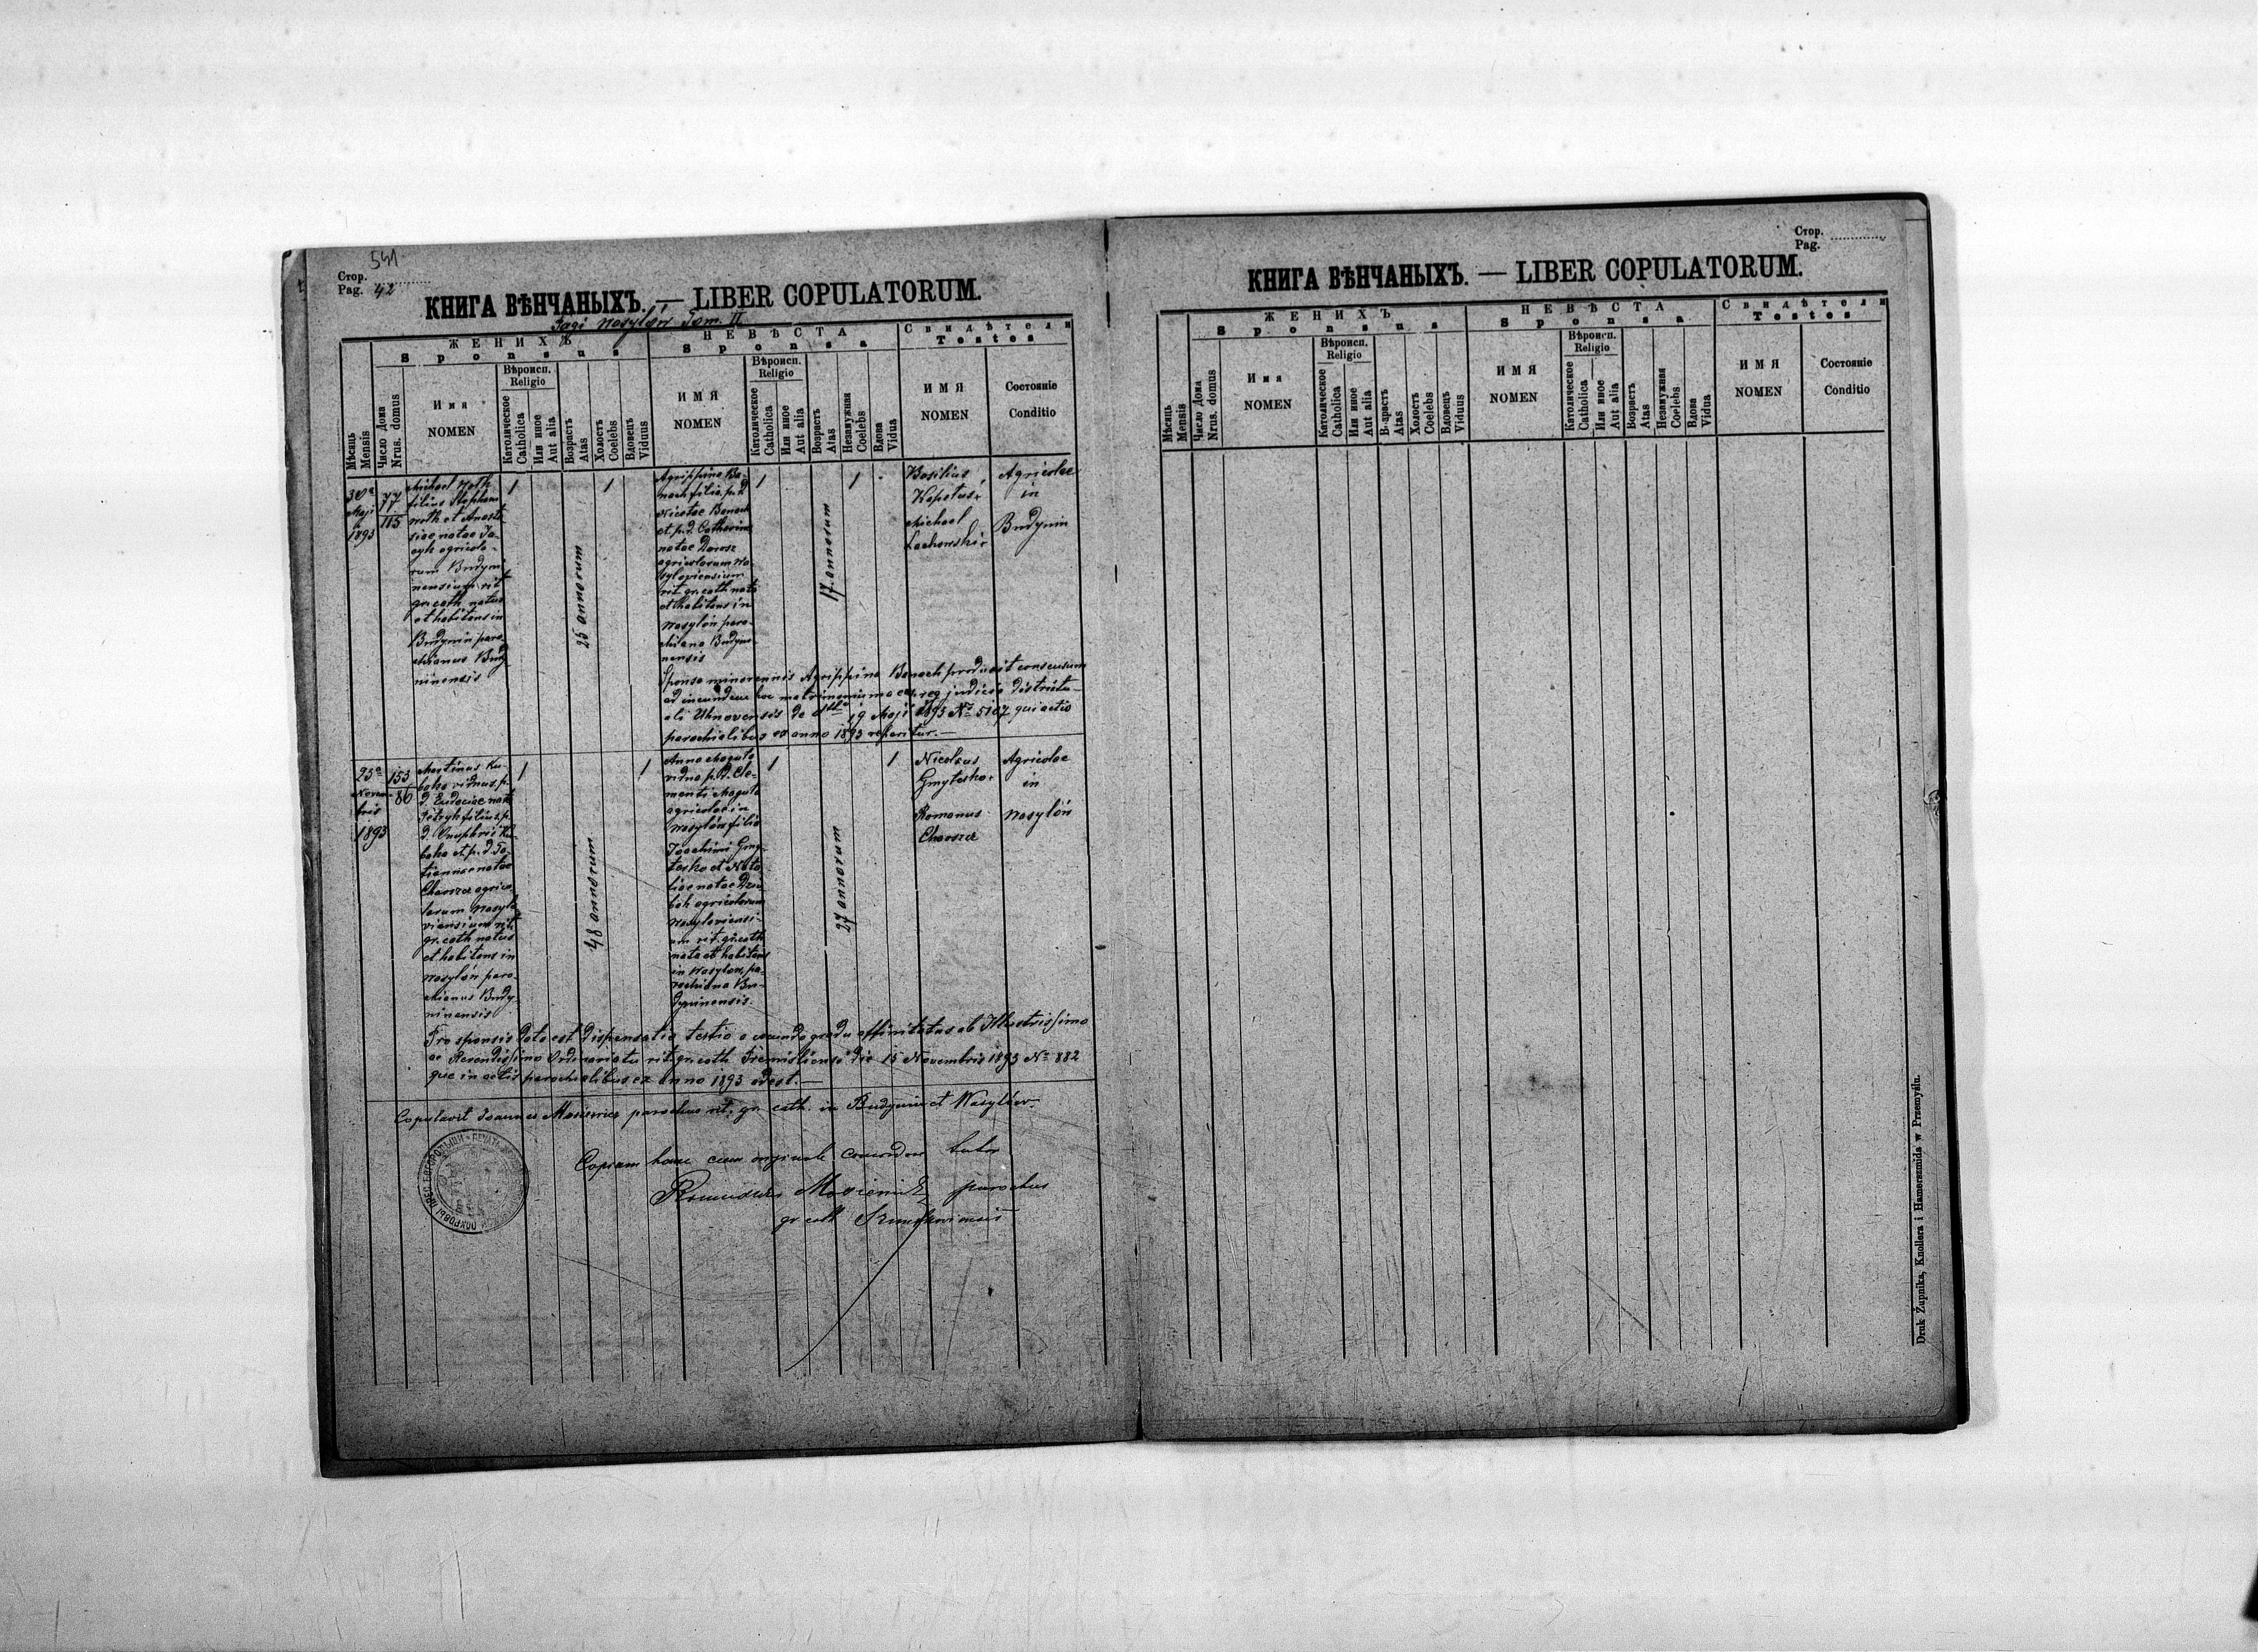 541
Стор.
Pag. 42
КНИГА ВѢНЧАНЫХЪ. — LIBER COPULATORUM.
Pagi Wasylów Tom. II
Мѣсяць
Mensis
Число Дома
Nrus. domus
ЖЕНИХЪ
Sponsus
Имя
NOMEN
Вѣроисп.
Religio
Католическое
Catholica
Или иное
Aut alia
Возрастъ
Atas
Холостъ
Coelebs
Вдовецъ
Viduus
НЕВѢСТА
Sponsa
ИМЯ
NOMEN
Вѣроисп.
Religio
Католическое
Catholica
Или иное
Aut alia
Возрастъ
Atas
Незамужная
Coelebs
Вдова
Vidua
Свидѣтели
Testes
ИМЯ
NOMEN
Состояніе
Conditio
30a
Maji
1893
77
115
Michael Noth
filius Stephani
Noth et Anasta
siae natae Ja-
cyk agricola-
rum Budyni
nensium rit
gr. cath. natus
et habitans in
Budynin paro-
chianus Budy
ninensis
1
25 annorum
1
Agrippina Ba-
nach filia p. d.
Nicolae Banach
et p. d. Catherina
natae Dorosz
agricolarum Wa-
syloviensium
rit. gr. cath. nata
et habitans in
Wasylów paro-
chiana Budyni-
nensis
1
17 annorum
1
Basilius
Kapetus
Michael
Lachowski
Agricolae
in
Budynin
Sponsa minorennis Agrippina Banach produxit consensum
ad ineundum hoc matrimonium ex reg judicio districtu-
ali Uhnovensis de dtto 19 Maji 1893 No 5107 qui actis
parochialibus ex anno 1893 reperitur.—
23a
Novem-
bris
1893
153
86
Martinus Ku-
boka viduus p.
d. Eudociae nat
Petryk filius p.
d. Onuphrii Ku-
boka et p. d. Ta-
tiannae natae
Charsza agrico-
larum Wasylo-
viensium rit.
gr. cath natus
et habitans in
Wasylów paro-
chianus Budy-
ninensis
1
48 annorum
1
Anna Magula
vidua p. d. Cle-
mentii Magula
agricolae in
Wasylów filia
Joachimi Gmy-
tesko et Nata-
liae natae Dziu
bak agricolarum
Wasyloviensi-
um rit. gr. cath
nata et habitans
in Wasylów, pa-
rochiana Bu-
dyninensis.
1
27 annorum
1
Nicolaus
Gmytesko
Romanus
Charsza
Agricolae
in
Wasylów
Pro sponsis data est dispensatio tertio a secundo gradu affinitatus ab Illustrissimo
ac Reverendissimo Ordinariatu rit. gr. cath. Premisliensi die 15 Novembris 1893 No 882
que in actis parochialibus ex anno 1893 adest.—
Copulavit Joannes parochus rit. gr. cath. in Budynin et Wasylów.
Copiam hanc cum originali concordare
parochus
gr cath
Стор.
Pag.
КНИГА ВѢНЧАНЫХЪ. — LIBER COPULATORUM.
Мѣсяць
Mensis
Число Дома
Nrus. domus
ЖЕНИХЪ
Sponsus
Имя
NOMEN
Вѣроисп.
Religio
Католическое
Catholica
Или иное
Aut alia
В-зрастъ
Atas
Холостъ
Coelebs
Вдовецъ
Viduus
НЕВѢСТА
Sponsa
ИМЯ
NOMEN
Вѣроисп.
Religio
Католическое
Catholica
Или иное
Aut alia
Возрастъ
Atas
Незамужная
Coelebs
Вдова
Vidua
Свидѣтели
Testes
ИМЯ
NOMEN
Состояніе
Conditio
Druk Żupnika, Knollera i Hamerszmida w Przemyślu.